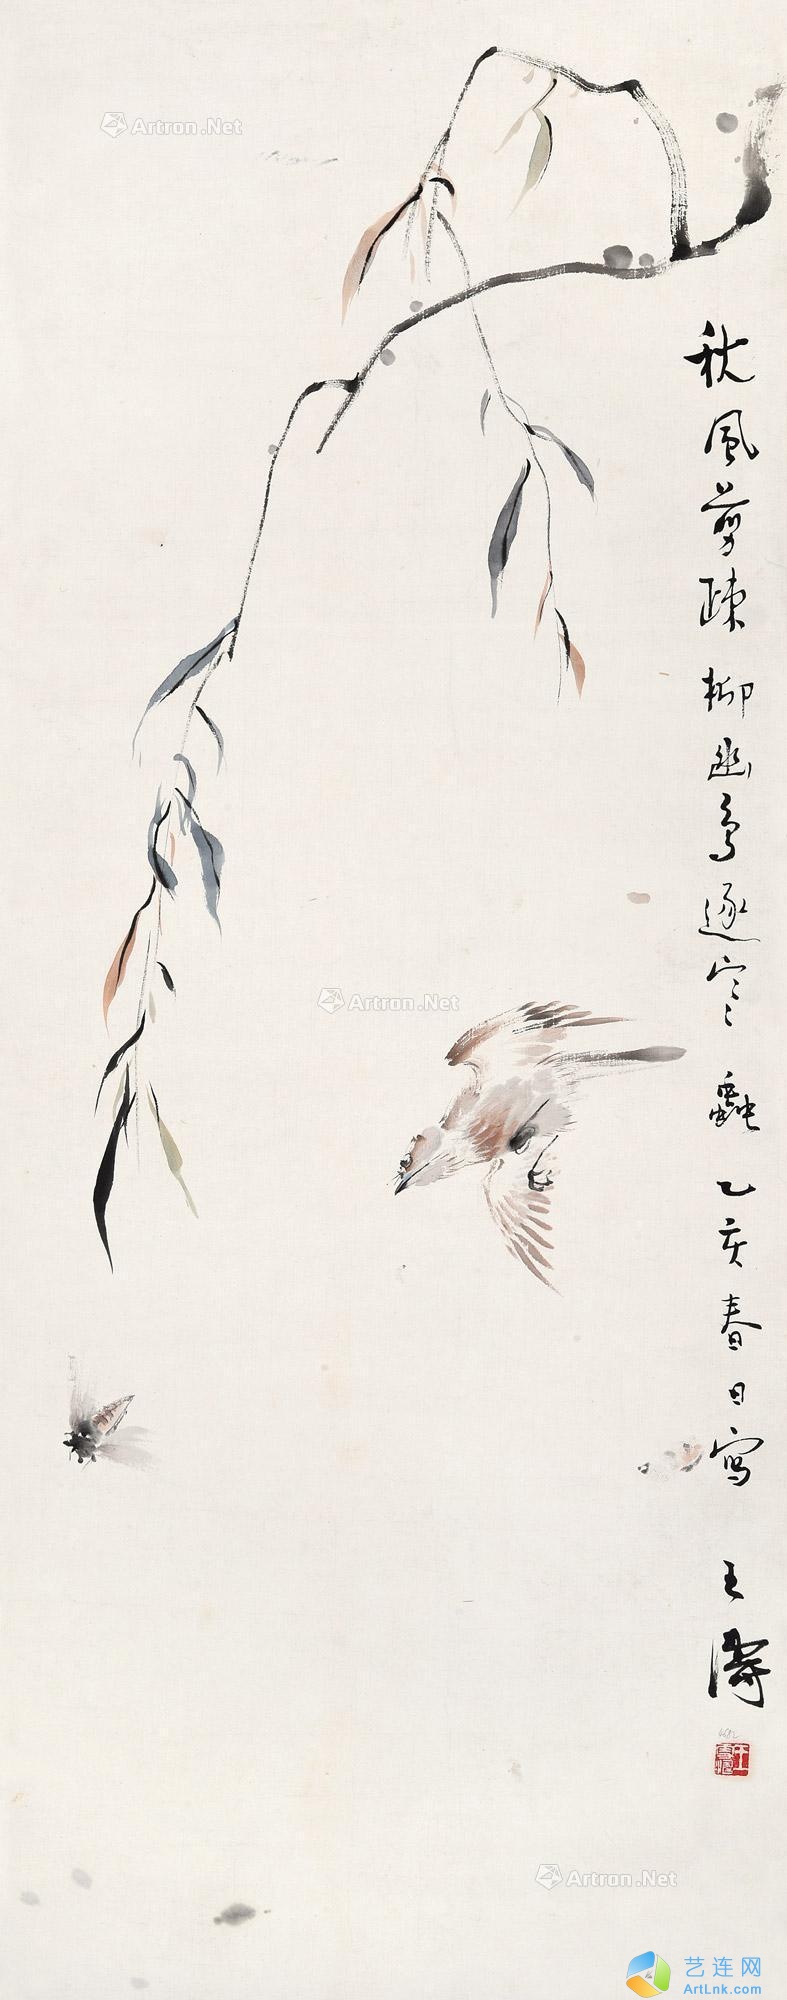 Artron.Net
秋風剪疎柳幽鳥逐寒蟲 乙亥春日寫 王
Artron.Net
Artron.Net
艺连网
ArtLnk.com